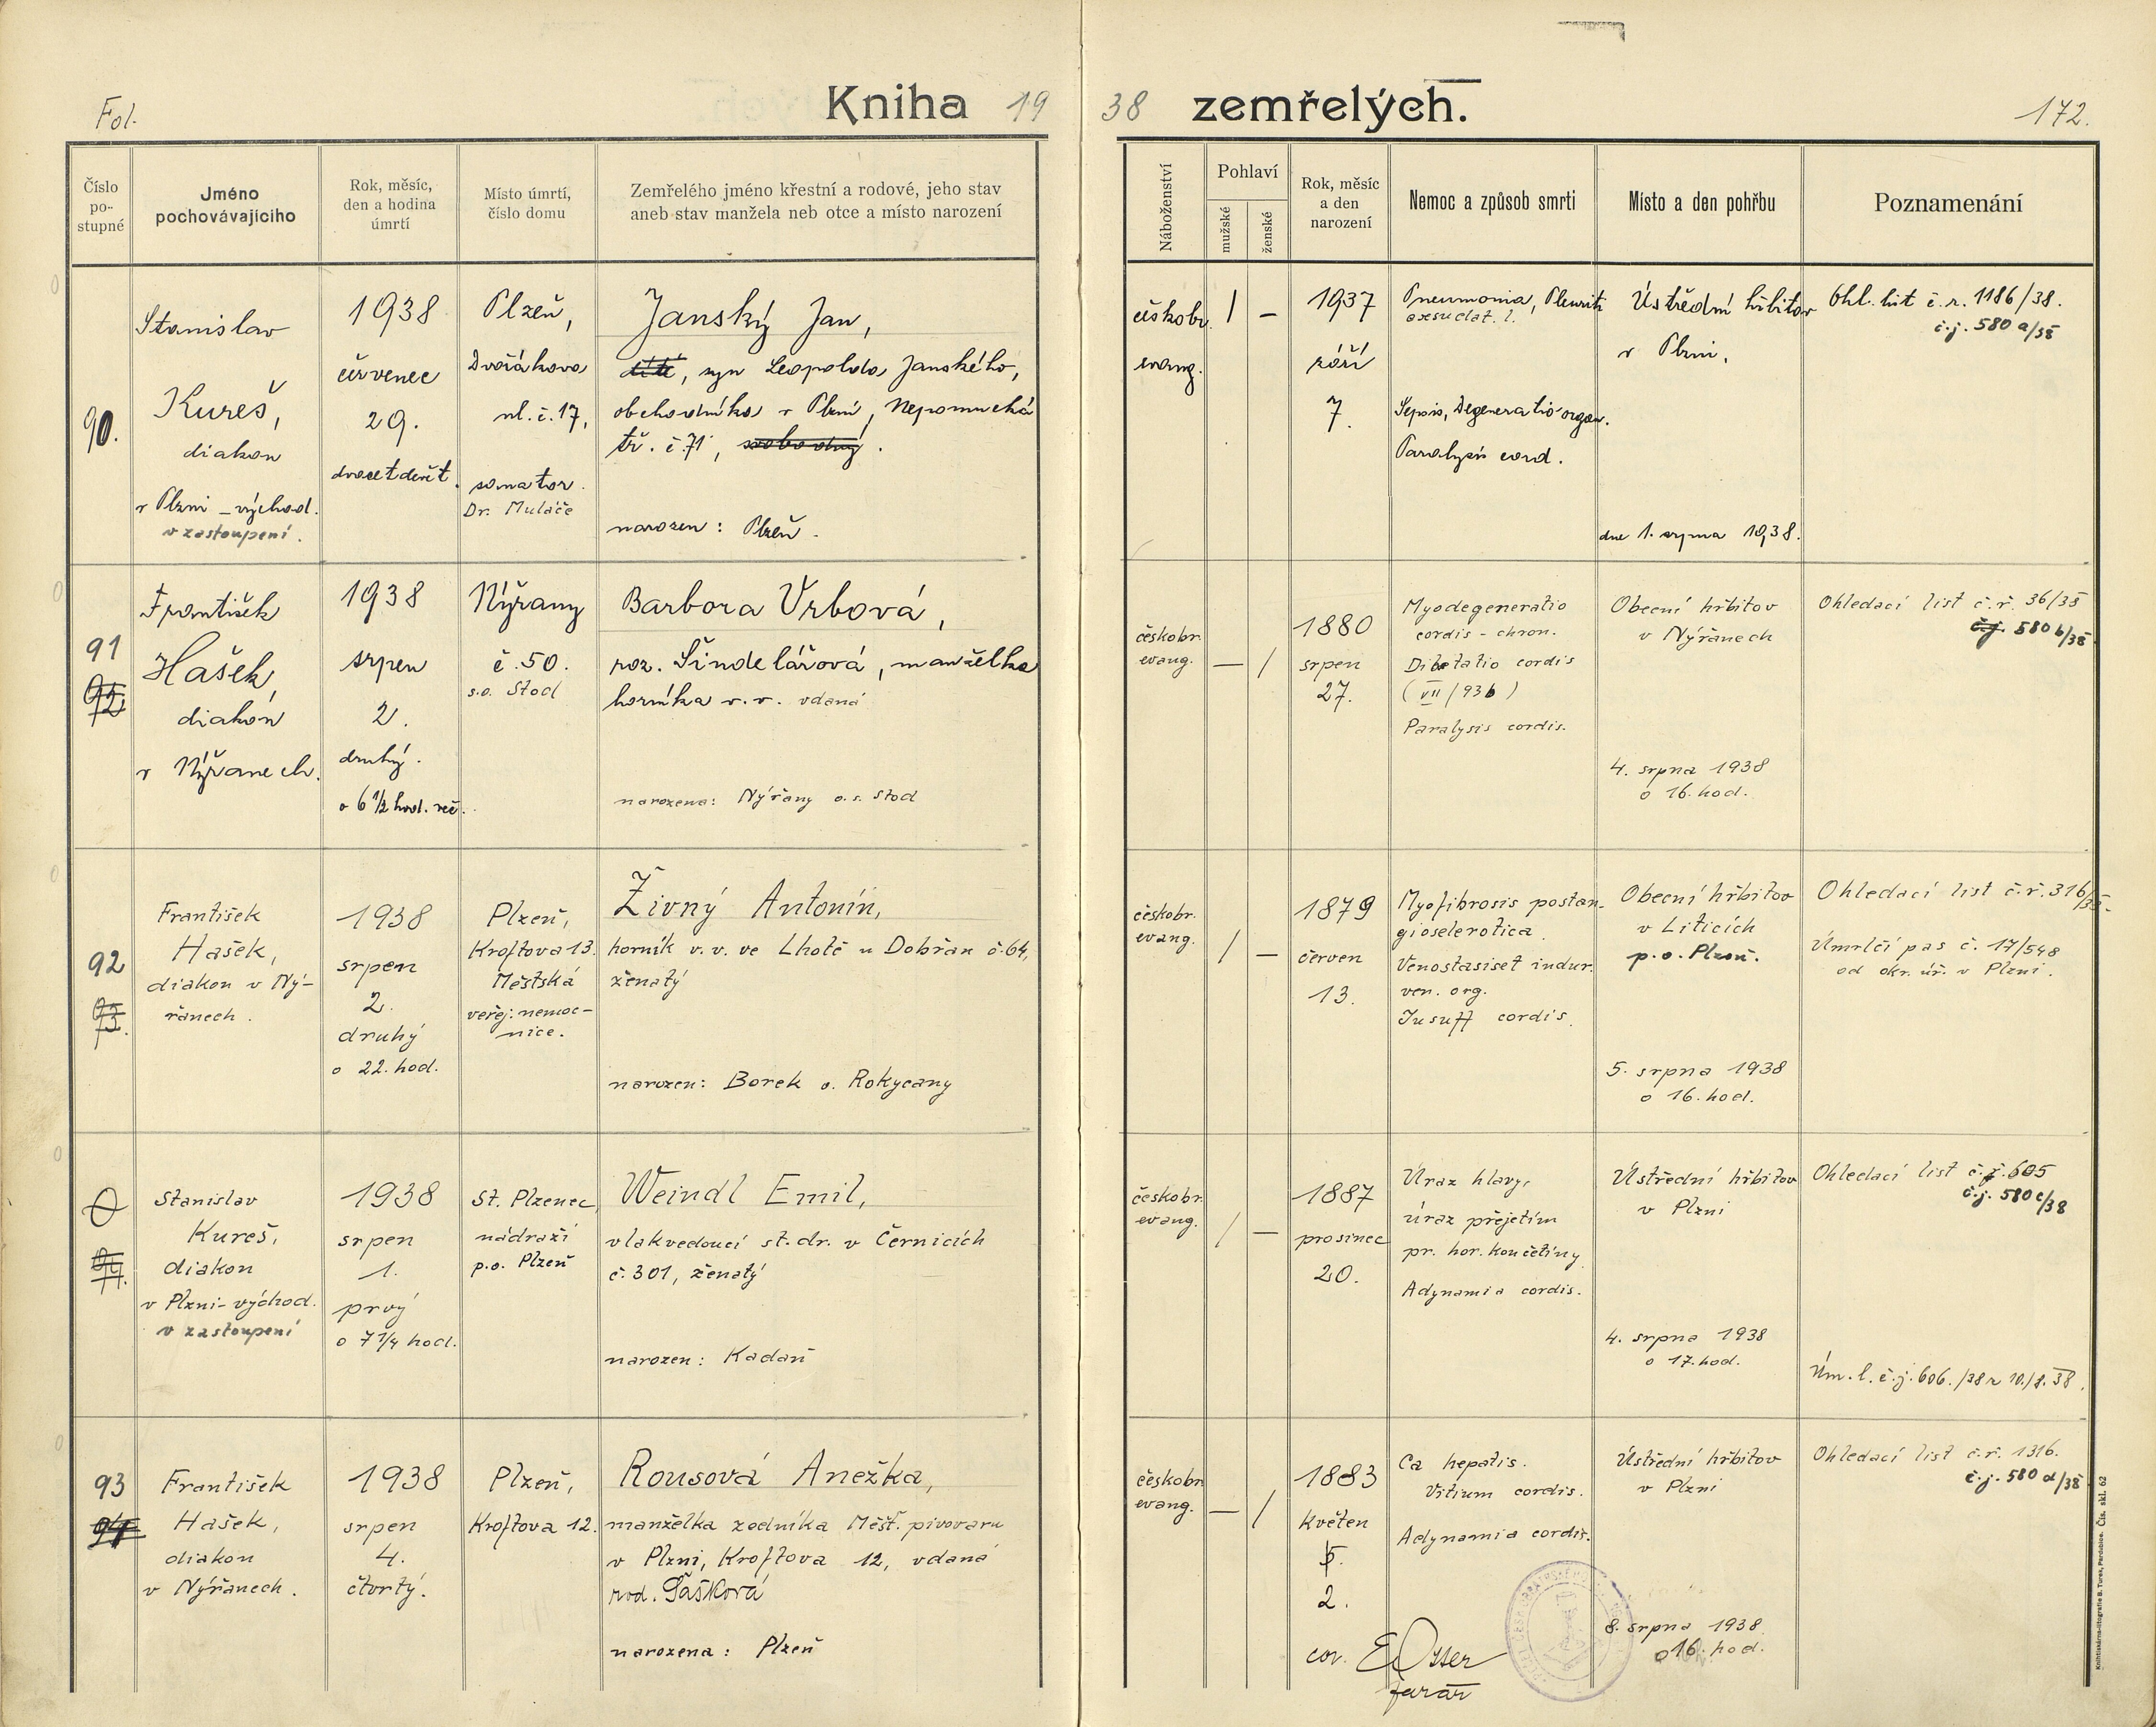 Fol.
Kniha 19
38 zemřelých.
172.
Číslo
po-
stupné
Jméno
pochovávajícího
Rok, měsíc,
den a hodina
úmrtí
Místo úmrtí,
číslo domu
Zemřelého jméno křestní a rodové, jeho stav
aneb stav manžela neb otce a místo narození
Náboženství
Pohlaví
mužské
ženské
Rok, měsíc
a den
narození
Nemoc a způsob smrti
Místo a den pohřbu
Poznamenání
90.
Stanislav
Kureš,
diakon
v Plzni - východ.
v zastoupení.
1938
červenec
29.
dvacetdevět.
Plzeň,
Dvořákova
ul. č. 17,
sanator.
Dr. Muláče
Janský Jan,
dítě, syn Leopolda Janského,
obchodníka v Plzni, Nepomucká
tř. č. 71, svobodný.
narozen: Plzeň.
českobr.
evang.
/ –
1937
září
7.
Pneumonia, Pleurit.
exsudat. l.
Sepsis, Degeneratio organ.
Paralysis cord.
Ústřední hřbitov
v Plzni,
dne 1. srpna 1938.
Ohl. list č. ř. 1186/38.
č.j. 580 a/38
91
92.
František
Hašek,
diakon
v Nýřanech.
1938
srpen
2.
druhý.
o 6 1/2 hod. več.
Nýřany
č. 50.
s.o. Stod
Barbora Vrbová,
roz. Šindelářová, manželka
horníka v. v. vdaná
narozena: Nýřany o. s. Stod
českobr.
evang.
– /
1880
srpen
27.
Myodegeneratio
cordis - chron.
Dilatatio cordis
(VII/936)
Paralysis cordis.
Obecní hřbitov
v Nýřanech
4. srpna 1938
o 16. hod.
Ohledací list č. ř. 36/38
č.j. 580 b/38
92
93.
František
Hašek,
diakon v Ný-
řanech.
1938
srpen
2.
druhý
o 22. hod.
Plzeň,
Kroftova 13.
Městská
veřej. nemoc-
nice.
Živný Antonín,
horník v. v. ve Lhotě u Dobřan č. 64,
ženatý
narozen: Borek o. Rokycany
českobr.
evang.
/ –
1879
červen
13.
Myofibrosis postan-
gioselerotica
Venostasiset indur.
ven. org.
Insuff cordis.
Obecní hřbitov
v Liticích
p. o. Plzeň.
5. srpna 1938
o 16. hod.
Ohledací list č. ř. 316/38.
Úmrlčí pas č. 17/548
od okr. úř. v Plzni.
94.
Stanislav
Kureš,
diakon
v Plzni - východ.
v zastoupení
1938
srpen
1.
prvý
o 7 1/4 hod.
St. Plzenec
nádraží
p. o. Plzeň
Weindl Emil,
vlakvedoucí st. dr. v Černicích
č. 301, ženatý
narozen: Kadaň
českobr.
evang.
/ –
1887
prosinec
20.
Úraz hlavy,
úraz přejetím
pr. hor. končetiny
Adynamia cordis.
Ústřední hřbitov
v Plzni
4. srpna 1938
o 17. hod.
Ohledací list č. j. 605
č. j. 580 c/38
Úm. l. č. j. 606./38 z 10./8. 38.
93
94
František
Hašek,
diakon
v Nýřanech.
1938
srpen
4.
čtvrtý.
Plzeň,
Kroftova 12.
Rousová Anežka,
manželka zedníka Měšť. pivovaru
v Plzni, Kroftova 12, vdaná
rod. Šášková
narozena: Plzeň
českobr.
evang.
– /
1883
květen
2.
Ca hepatis.
Vitium cordis.
Adynamia cordis.
Ústřední hřbitov
v Plzni
8. srpna 1938
o 16. hod.
Ohledací list č. ř. 1316.
č. j. 580 d/38
cor.
farář
Knihtiskárna-litografie B. Tures, Pardubice. Čís. skl. 62